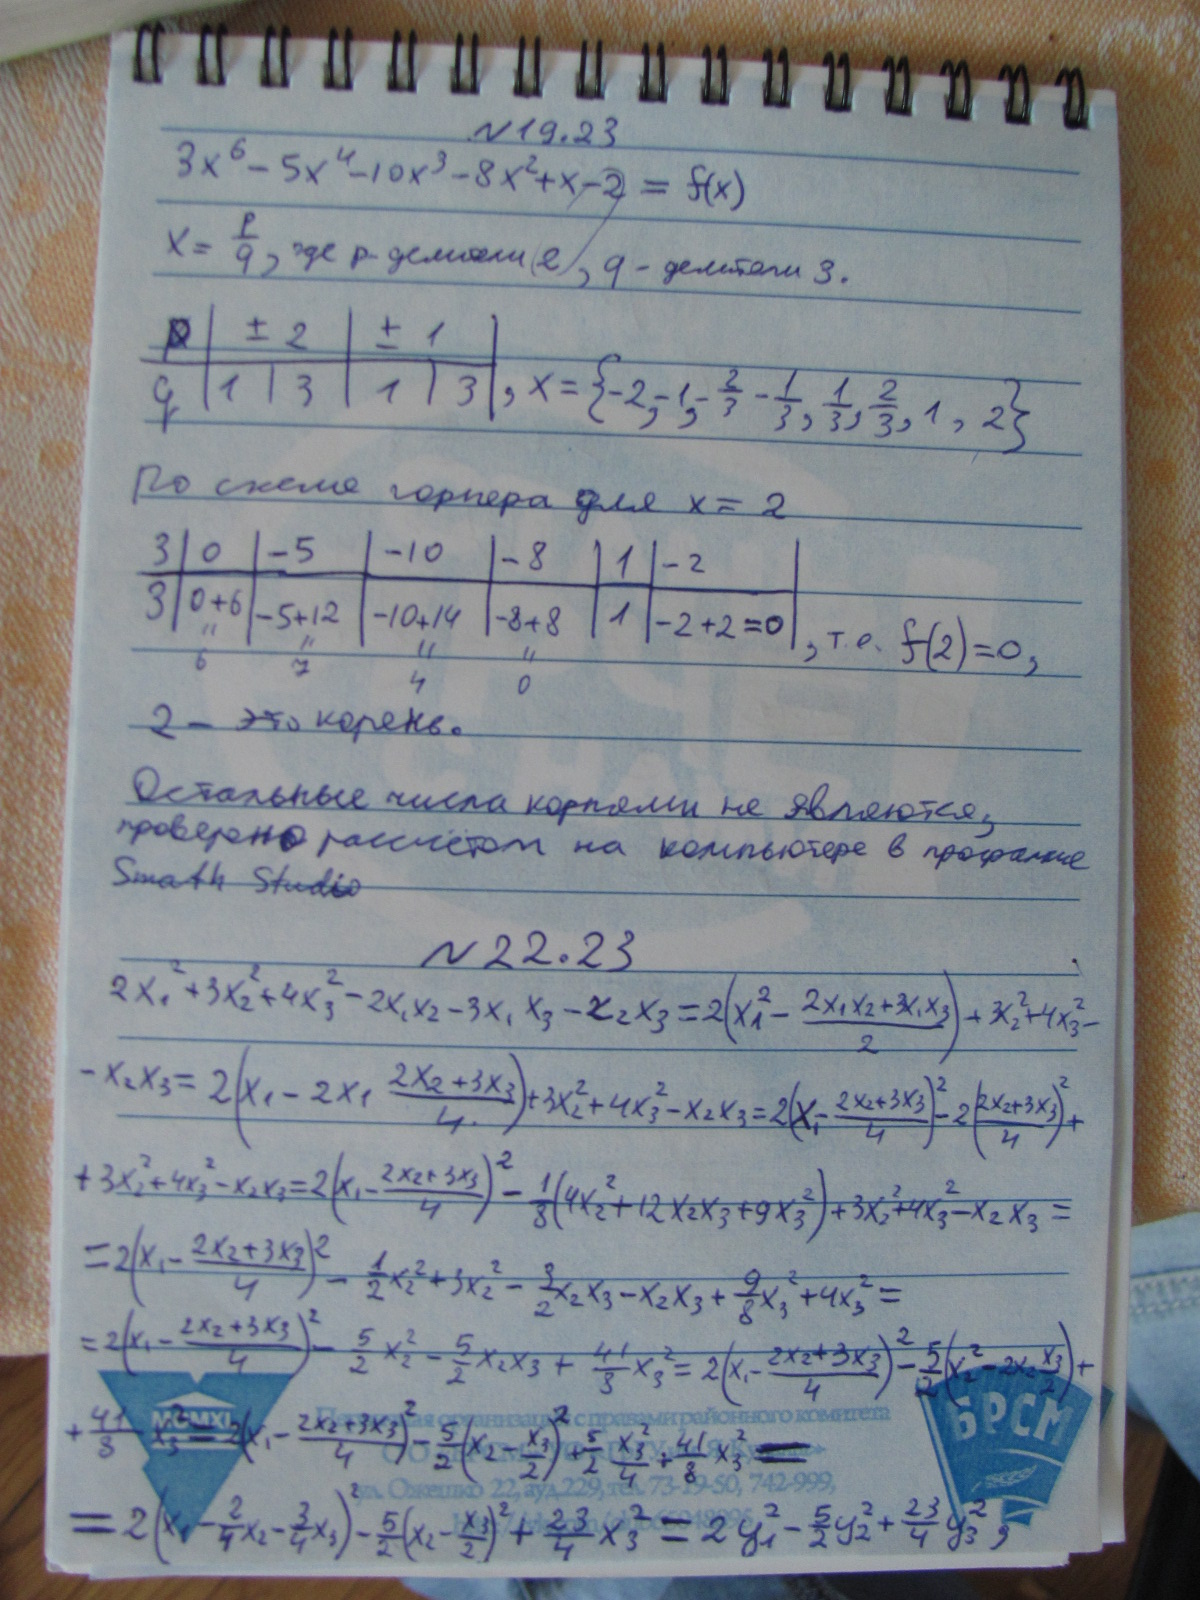 №19.23
3x⁶-5x⁴-10x³-8x²+x-2 = f(x)
x = p/q, где p-делители(2), q - делители 3.
p | ± 2 | ± 1 |
q | 1 | 3 | 1 | 3 |, x = {-2,-1,-2/3 -1/3, 1/3, 2/3, 1, 2}
По схеме горнера для x = 2
3 | 0 | -5 | -10 | -8 | 1 | -2 |
3 | 0+6 | -5+12 | -10+14 | -8+8 | 1 | -2+2=0 |, т.е. f(2)=0,
" " " "
6 7 4 0
2 - это корень.
Остальные числа корнями не являются,
проверено рассчётом на компьютере в программе
Smath Studio
№22.23
2x₁²+3x₂²+4x₃²-2x₁x₂-3x₁x₃-x₂x₃=2(x₁²- (2x₁x₂+3x₁x₃)/2)+3x₂²+4x₃²-
-x₂x₃= 2(x₁-2x₁ (2x₂+3x₃)/4.)+3x₂²+4x₃²-x₂x₃=2(x₁-(2x₂+3x₃)/4)²-2((2x₂+3x₃)/4)²+
+3x₂²+4x₃²-x₂x₃=2(x₁-(2x₂+3x₃)/4)²-1/8(4x₂²+12x₂x₃+9x₃²)+3x₂²+4x₃²-x₂x₃=
=2(x₁-(2x₂+3x₃)/4)²-1/2x₂²+3x₂²-3/2x₂x₃-x₂x₃+9/8x₃²+4x₃²=
=2(x₁-(2x₂+3x₃)/4)²-5/2x₂²-5/2x₂x₃+41/8x₃²=2(x₁-(2x₂+3x₃)/4)²-5/2(x₂²-2x₂x₃/2)+
+41/8x₃²=2(x₁-(2x₂+3x₃)/4)²-5/2(x₂-x₃/2)²+5/2 x₃²/4+41/8x₃²=
=2(x₁-2/4x₂-3/4x₃)²-5/2(x₂-x₃/2)²+23/4x₃²=2y₁²-5/2y₂²+23/4y₃²,
MCMXL
организация с правами районного комитета
БРСМ
ул. Ожешко 22, ауд.229, тел. 73-19-50, 742-999,